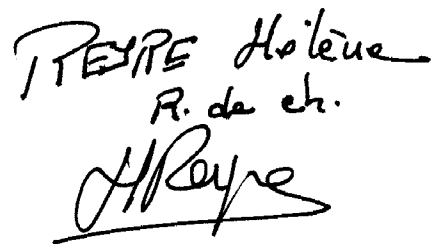 PREYRE Hélène
R. de ch.
HPreyre